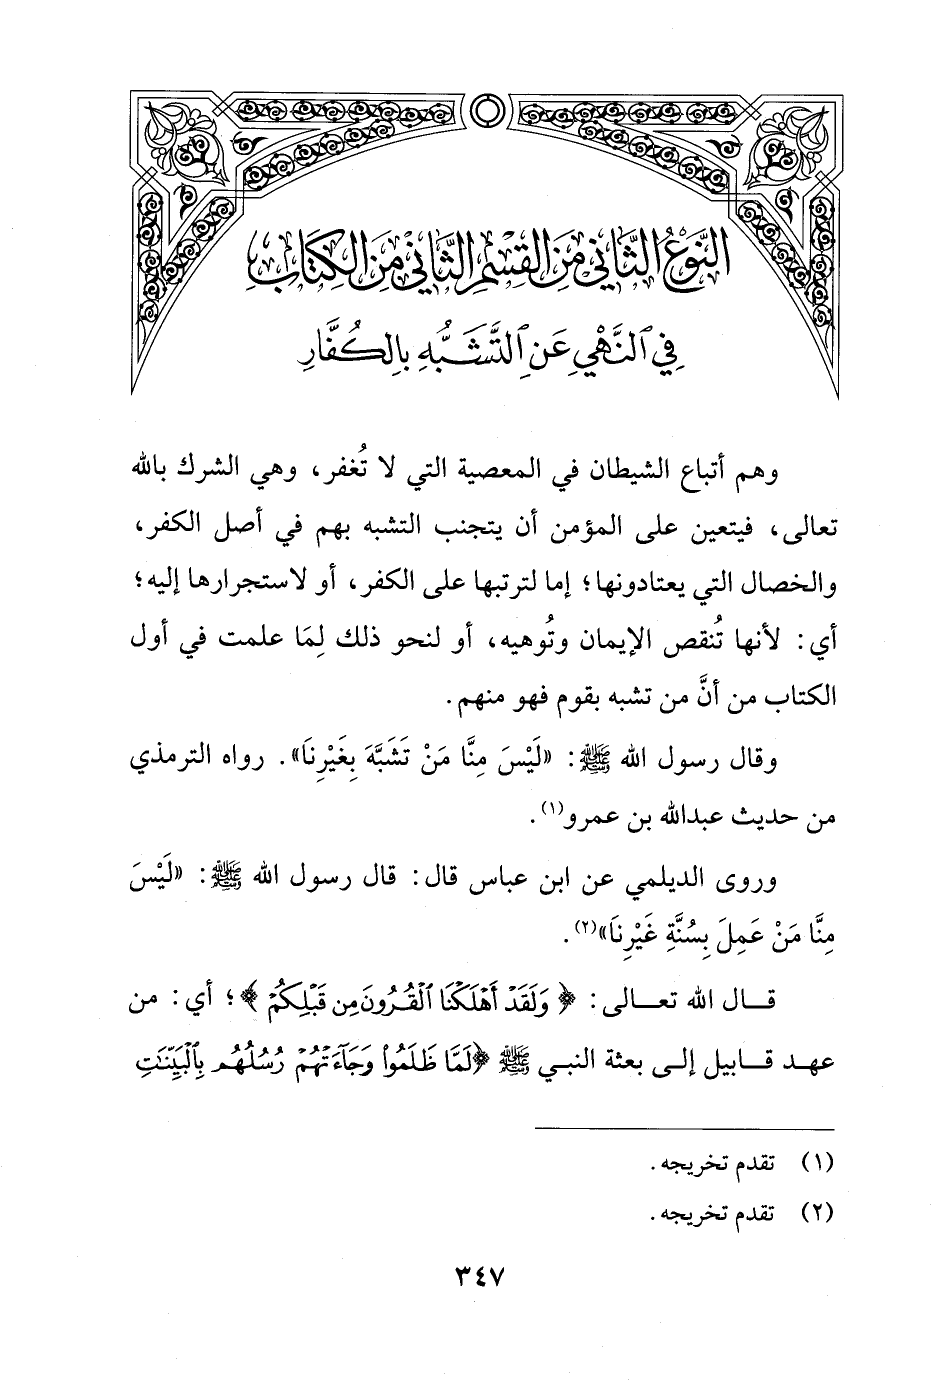 النَّوْعُ الثَّانِي مِنَ القِسْمِ الثَّانِي مِنَ الكِتَابِ
فِي النَّهْيِ عَنِ التَّشَبُّهِ بِالكُفَّارِ
وهم أتباع الشيطان في المعصية التي لا تُغفر، وهي الشرك بالله
تعالى، فيتعين على المؤمن أن يتجنب التشبه بهم في أصل الكفر،
والخصال التي يعتادونها؛ إما لترتبها على الكفر، أو لاستجرارها إليه؛
أي: لأنها تُنقص الإيمان وتُوهيه، أو لنحو ذلك لِمَا علمت في أول
الكتاب من أنَّ من تشبه بقوم فهو منهم.
وقال رسول الله ﷺ: «لَيْسَ مِنَّا مَنْ تَشَبَّهَ بِغَيْرِنَا». رواه الترمذي
من حديث عبدالله بن عمرو(١).
وروى الديلمي عن ابن عباس قال: قال رسول الله ﷺ: «لَيْسَ
مِنَّا مَنْ عَمِلَ بِسُنَّةِ غَيْرِنَا»(٢).
قال الله تعالى: ﴿وَلَقَدْ أَهْلَكْنَا ٱلْقُرُونَ مِن قَبْلِكُمْ﴾؛ أي: من
عهد قابيل إلى بعثة النبي ﷺ ﴿لَمَّا ظَلَمُوا۟ وَجَآءَتْهُمْ رُسُلُهُم بِٱلْبَيِّنَٰتِ
(١) تقدم تخريجه.
(٢) تقدم تخريجه.
٣٤٧